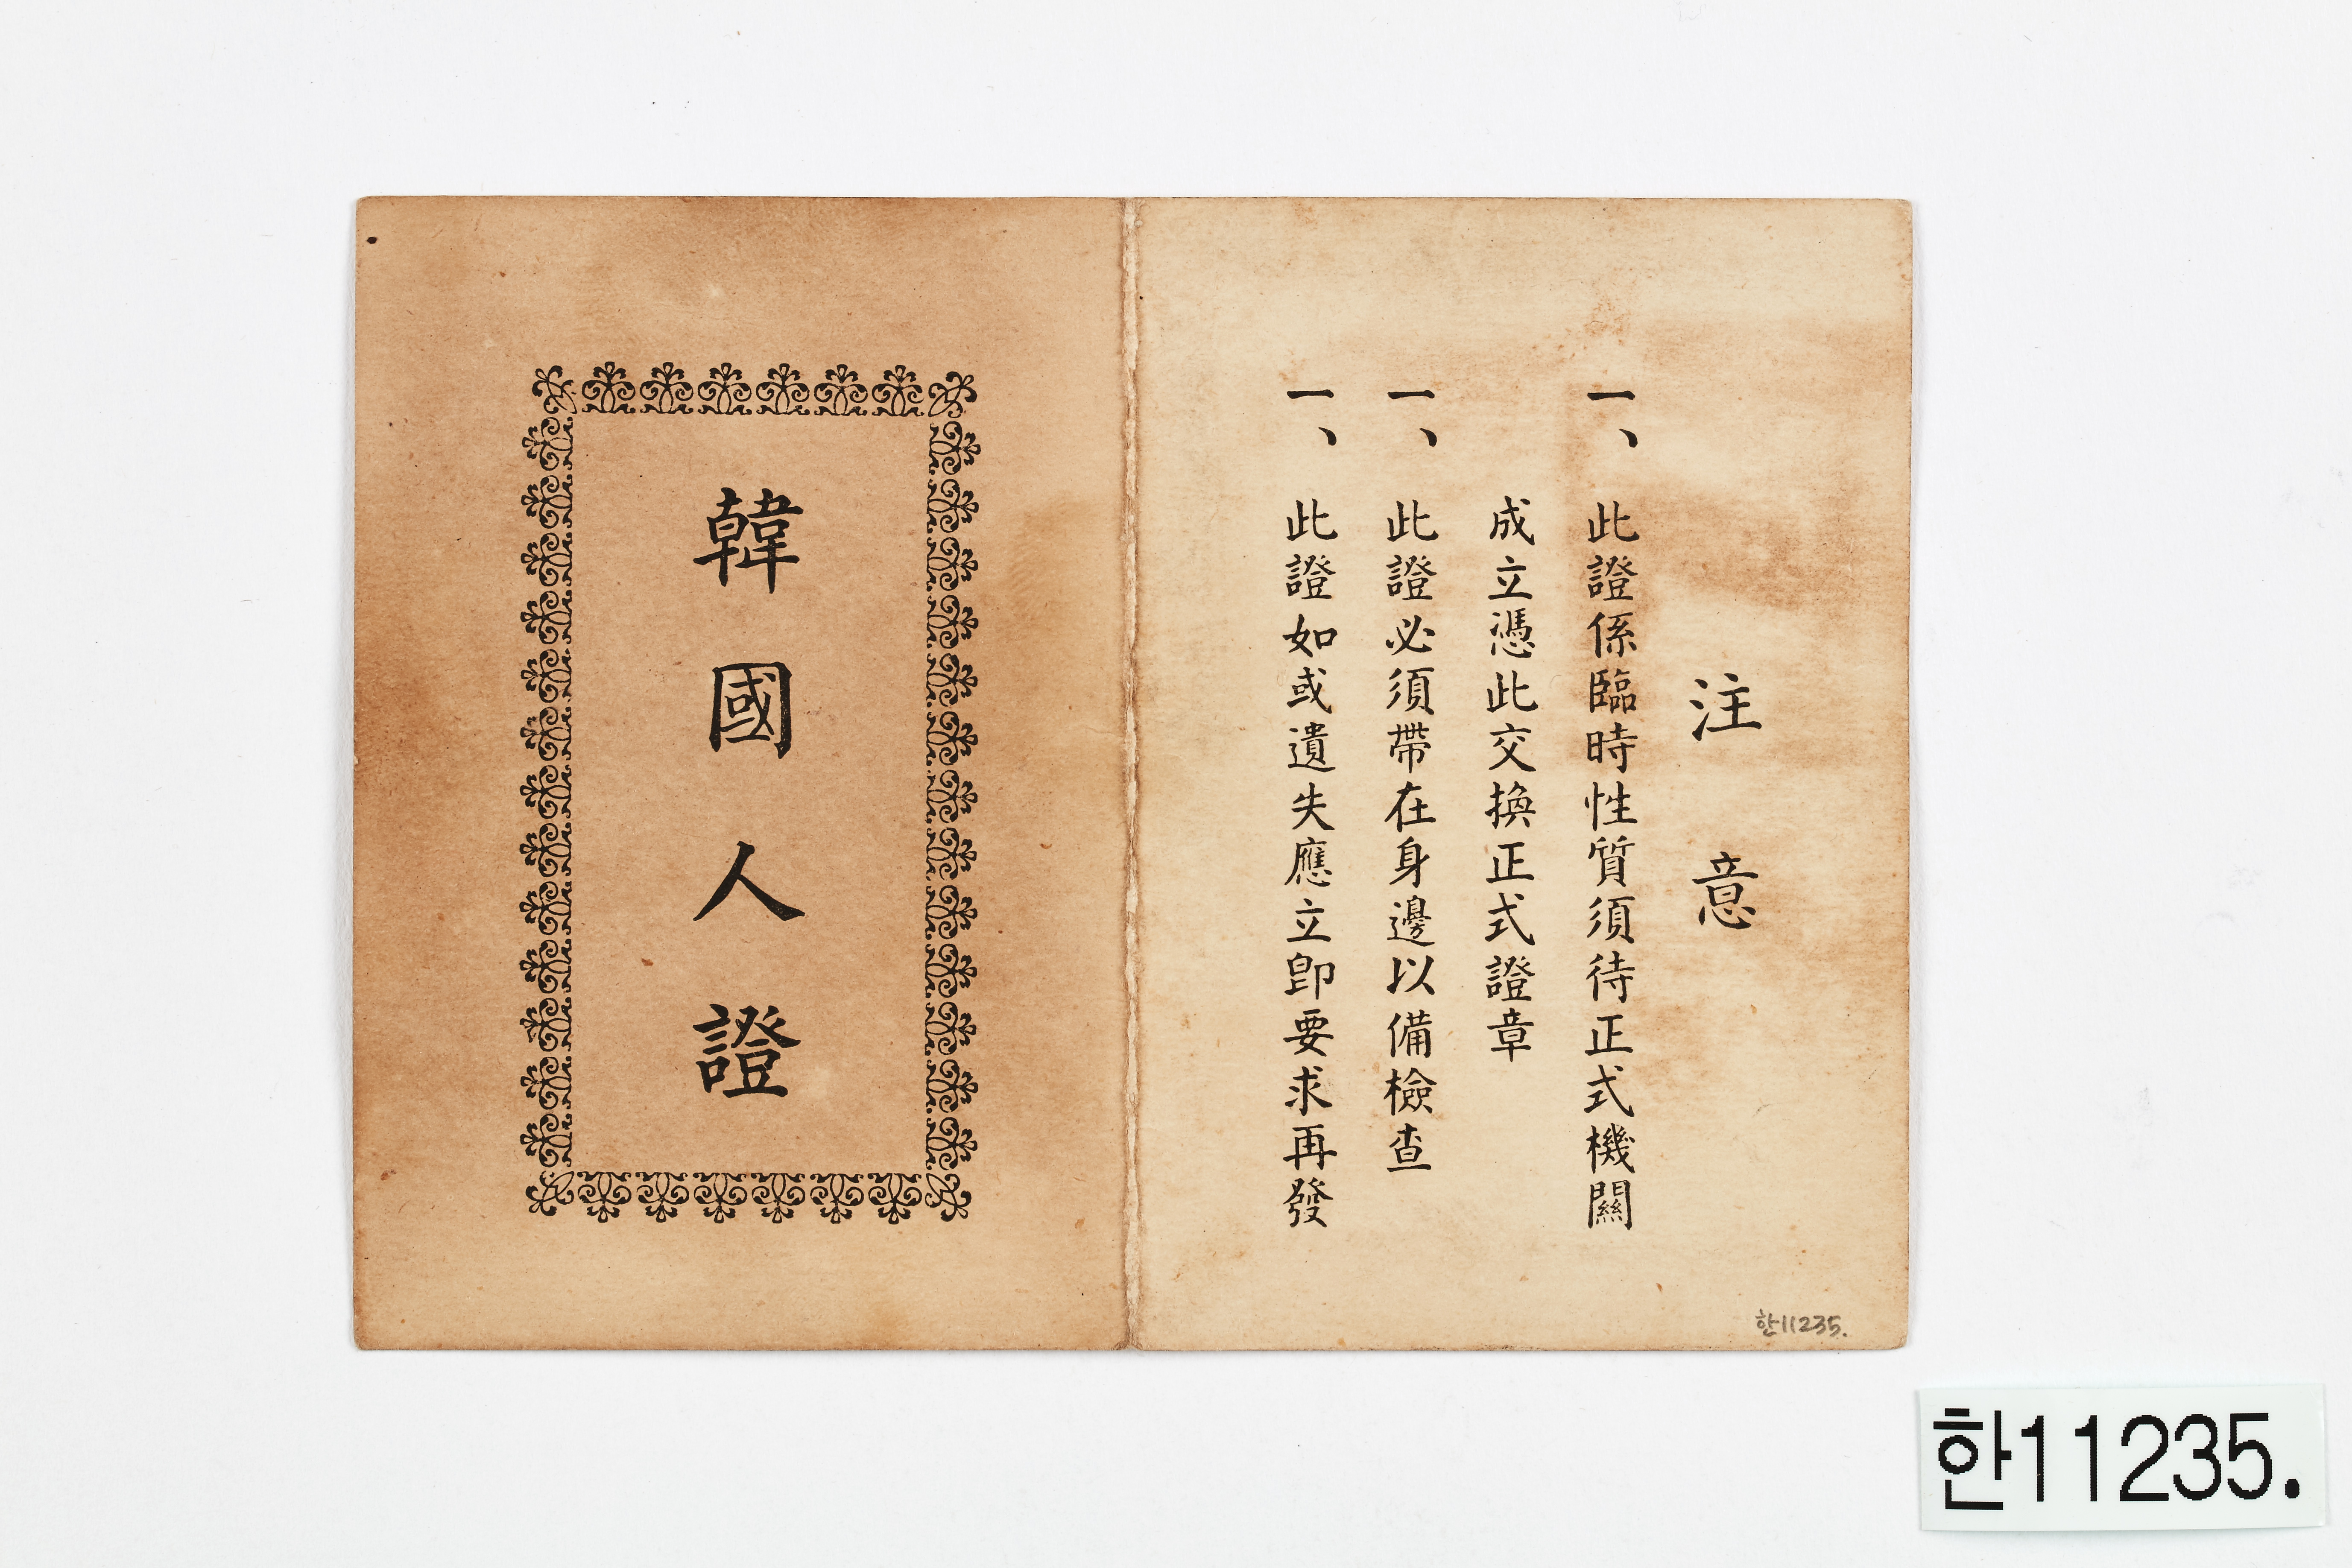 注意
一、此證係臨時性質須待正式機關
成立憑此交換正式證章
一、此證必須帶在身邊以備檢查
一、此證如或遺失應立卽要求再發
韓國人證
한11235.
한11235.